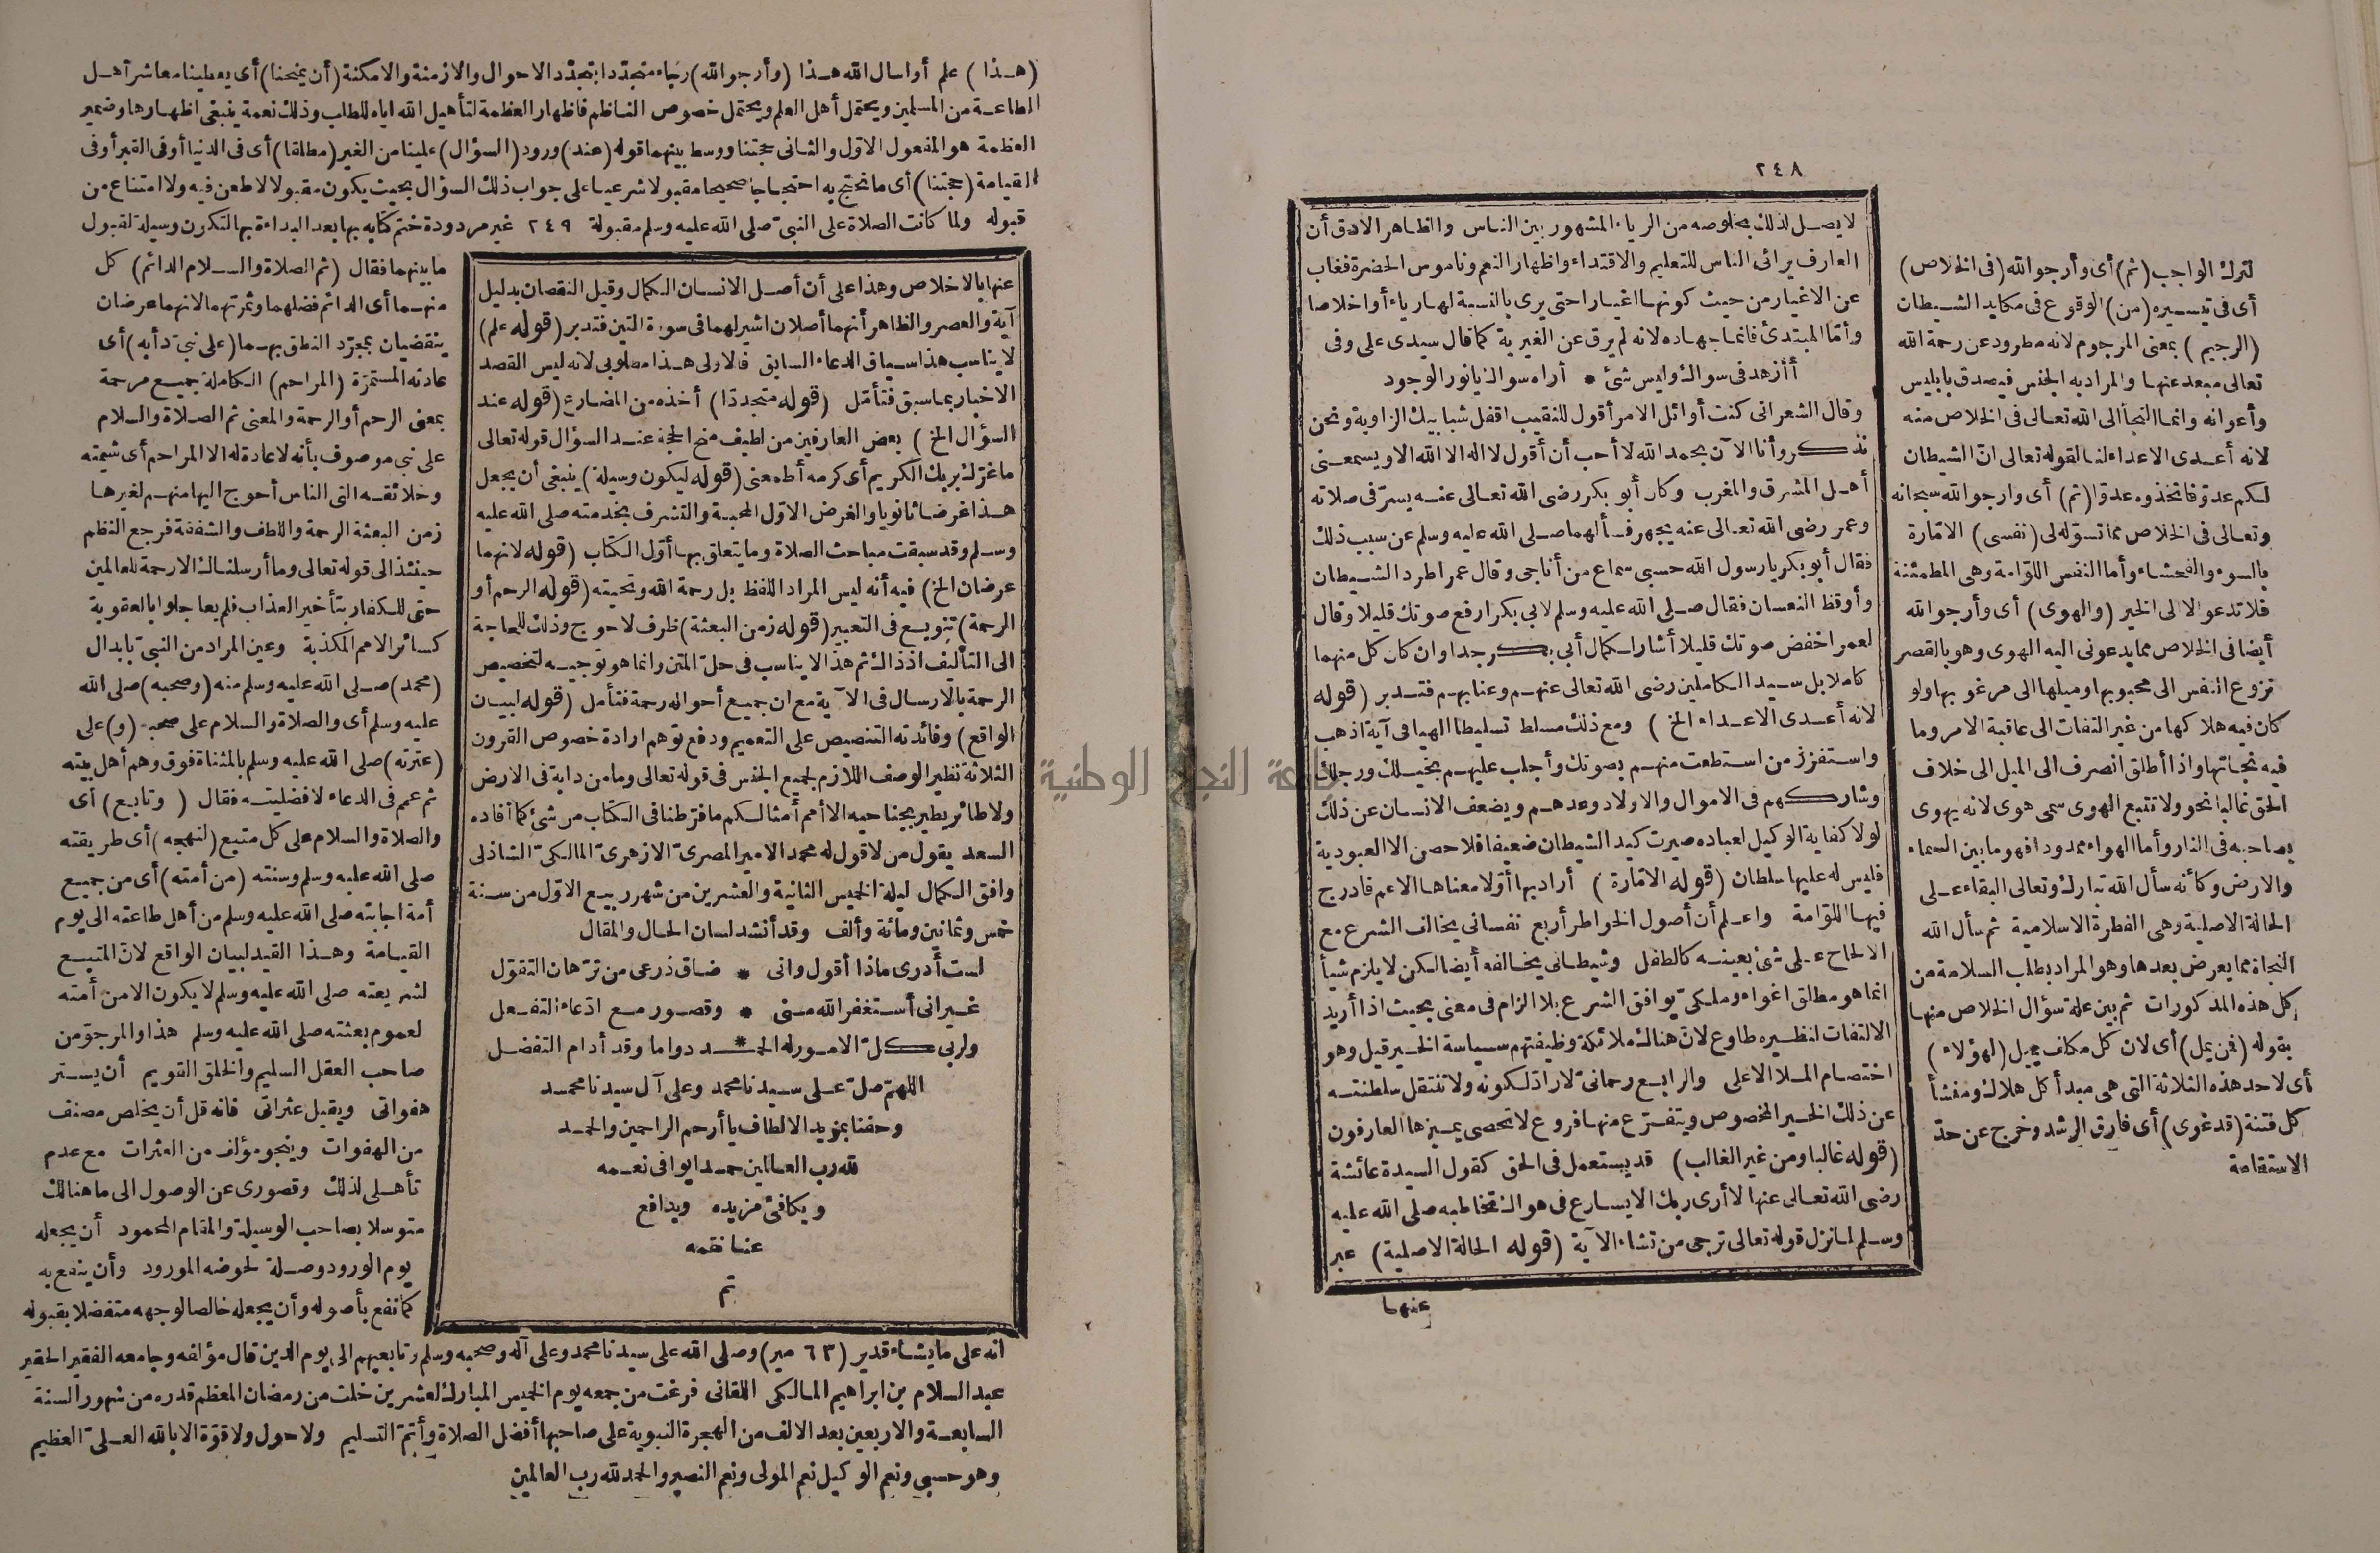 ٢٤٨
لترك الواجب (ثم) أى وأرجو الله (فى الخلاص)
أى فى تيسيره (من) الوقوع فى مكايد الشيطان
(الرجيم) بمعنى المرجوم لانه مطرود عن رحمة الله
تعالى مبعد عنها والمراد به الجنس فيصدق بابليس
وأعوانه وانما التجأ الى الله تعالى فى الخلاص منه
لانه أعدى الاعداء لنا لقوله تعالى ان الشيطان
لكم عدو فاتخذوه عدوا (ثم) أى وارجو الله سبحانه
وتعالى فى الخلاص مما تسوّله لى (نفسى) الامّارة
بالسوء والفحشاء وأما النفس اللوّامة وهى المطمئنة
فلا تدعو الا الى الخير (والهوى) أى وأرجو الله
أيضا فى الخلاص مما يدعونى اليه الهوى وهو بالقصر
نزوع النفس الى محبوبها وميلها الى مرغوبها ولو
كان فيه هلاكها من غير التفات الى عاقبة الامر وما
فيه نجاتها واذا أطلق انصرف الى الميل الى خلاف
الحق غالبا نحو ولا تتبع الهوى سمى هوى لانه يهوى
بصاحبه فى النار وأما الهواء ممدودا فهو ما بين السماء
والارض وكأنه سأل الله تبارك وتعالى البقاء على
الحالة الاصلية وهى الفطرة الاسلامية ثم سأل الله
النجاة مما يعرض بعدها وهو المراد بطلب السلامة من
كل هذه المذكورات ثم بين علة سؤال الخلاص منها
بقوله (فمن يمل) أى لان كل مكلف يميل (لهؤلاء)
أى لاحد هذه الثلاثة التى هى مبدأ كل هلاك ومنشأ
كل فتنة (قد غوى) أى فارق الرشد وخرج عن حدّ
الاستقامة
لا يصل لذلك بخلوصه من الرياء المشهور بين الناس والظاهر الادق أن
العارف يرائى الناس للتعليم والاقتداء واظهار النعم وناموس الحضرة فغاب
عن الاغيار من حيث كونها اغيارا حتى يرى بالنسبة لها رياء أو اخلاصا
وأمّا المبتدئ فانما جهاده لانه لم يرق عن الغيرية كما قال سيدى على وفى
أأزهد فى سواك وليس شئ * أراه سواك يا نور الوجود
وقال الشعرانى كنت أوائل الامر أقول للنقيب اقفل شبابيك الزاوية ونحن
نذكر وأنا الآن بحمد الله لا أحب أن أقول لا اله الا الله الا ويسمعنى
أهل المشرق والمغرب وكان أبو بكر رضى الله تعالى عنه يسرّ فى صلاته
وعمر رضى الله تعالى عنه يجهر فسألهما صلى الله عليه وسلم عن سبب ذلك
فقال أبو بكر يا رسول الله حسبى سماع من أناجى وقال عمر اطرد الشيطان
وأوقظ النعسان فقال صلى الله عليه وسلم لابى بكر ارفع صوتك قليلا وقال
لعمر اخفض صوتك قليلا أشارا لكمال أبى بكر جدا وان كان كل منهما
كاملا بل سيد الكاملين رضى الله تعالى عنهم وعنا بهم فتدبر (قوله
لانه أعدى الاعداء الخ) ومع ذلك مسلط تسليطا الهيا فى آية اذهب
واستفزز من استطعت منهم بصوتك وأجلب عليهم بخيلك ورجلك
وشاركهم فى الاموال والاولاد وعدهم ويضعف الانسان عن ذلك
لولا كفاية الوكيل لعباده صيرت كيد الشيطان ضعيفا فلا حصن الا العبودية
فليس له عليها سلطان (قوله الامّارة) أراد بها أوّلا معناها الاعم فادرج
فيها اللوّامة واعلم أن أصول الخواطر أربع نفسانى يخالف الشرع مع
الالحاح على شئ بعينه كالطفل وشيطانى يخالفه أيضا لكن لا يلزم شيأ
انما هو مطلق اغواء وملكىّ يوافق الشرع بلا الزام فى معنى بحيث اذا أريد
الالتفات لنظيره طاوع لان هناك ملائكة وظيفتهم سياسة الخير قيل وهو
اختصام الملا الاعلى والرابع رحمانىّ لا رادّ لكونه ولا تنتقل سلطنته
عن ذلك الخير المخصوص ويتفرّع منها فروع لا تحصى يميزها العارفون
(قوله غالبا ومن غير الغالب) قد يستعمل فى الحق كقول السيدة عائشة
رضى الله تعالى عنها لا أرى ربك الا يسارع فى هواك تخاطبه صلى الله عليه
وسلم لما نزل قوله تعالى ترجى من تشاء الآية (قوله الحالة الاصلية) عبر
عنها
(هذا) علم أو اسال الله هذا (وأرجو الله) رجاء متجدّدا بتجدّد الاحوال والازمنة والامكنة (أن يمنحنا) أى يعطينا معاشر أهل
الطاعة من المسلمين ويحتمل أهل العلم ويحتمل خصوص الناظم فاظهار العظمة لتأهيل الله اياه للطلب وذلك نعمة ينبغى اظهارها وضمير
العظمة هو المفعول الاوّل والثانى حجتنا ووسط بينهما قوله (عند) ورود (السؤال) علينا من الغير (مطلقا) أى فى الدنيا أو فى القبر أو فى
القيامة (حجتنا) أى ما نحتج به احتجاجا صحيحا مقبولا شرعيا على جواب ذلك السؤال بحيث يكون مقبولا لا طعن فيه ولا امتناع من
قبوله ولما كانت الصلاة على النبىّ صلى الله عليه وسلم مقبولة ٢٤٩ غير مردودة ختم كتابه بها بعد البداءة بها لتكون وسيلة لقبول
ما بينهما فقال (ثم الصلاة والسلام الدائم) كل
منهما أى الدائم فضلهما وثمرتهما لانهما عرضان
ينقضيان بمجرّد النطق بهما (على نبىّ دأبه) أى
عادته المستمرّة (المراحم) الكاملة جميع مرحمة
بمعنى الرحم أو الرحمة والمعنى ثم الصلاة والسلام
على نبى موصوف بأنه لا عادة له الا المراحم أى شيمته
وخلائقه التى الناس أحوج اليها منهم لغيرها
زمن البعثة الرحمة واللطف والشفقة فرجع النظم
حينئذ الى قوله تعالى وما أرسلناك الا رحمة للعالمين
حتى للكفار بتأخير العذاب فلم يعاجلوا بالعقوبة
كسائر الامم المكذبة وعين المراد من النبىّ بابدال
(محمد) صلى الله عليه وسلم منه (وصحبه) صلى الله
عليه وسلم أى والصلاة والسلام على صحبه (و) على
(عترته) صلى الله عليه وسلم بالمثناة فوق وهم أهل بيته
ثم عمم فى الدعاء لافضليته فقال (وتابع) أى
والصلاة والسلام على كل متبع (لنهجه) أى طريقته
صلى الله عليه وسلم وسنته (من أمته) أى من جميع
أمة اجابته صلى الله عليه وسلم من أهل طاعته الى يوم
القيامة وهذا القيد لبيان الواقع لانّ المتبع
لشريعته صلى الله عليه وسلم لا يكون الا من أمته
لعموم بعثته صلى الله عليه وسلم هذا والمرجوّ من
صاحب العقل السليم والخلق القويم أن يستر
هفواتى ويقيل عثراتى فانه قل أن يخلص مصنف
من الهفوات وينجو مؤلف من العثرات مع عدم
تأهلى لذلك وقصورى عن الوصول الى ما هنالك
متوسلا بصاحب الوسيلة والمقام المحمود أن يجعله
يوم الورود وصلة لحوضه المورود وأن ينفع به
كما نفع بأصوله وأن يجعله خالصا لوجهه متفضلا بقبوله
عنها بالاخلاص وهذا على أن أصل الانسان الكمال وقيل النقصان بدليل
آية والعصر والظاهر أنهما أصلان اشير لهما فى سورة التين فتدبر (قوله علم)
لا يناسب هذا سياق الدعاء السابق فالاولى هذا مطلوبى لانه ليس القصد
الاخبار بما سبق فتأمّل (قوله متجددا) أخذه من المضارع (قوله عند
السؤال الخ) بعض العارفين من لطيف منح الحجة عند السؤال قوله تعالى
ما غرّك بربك الكريم أى كرمه أطمعنى (قوله ليكون وسيلة) ينبغى أن يجعل
هذا غرضا ثانويا والغرض الاوّل المحبة والتشرف بخدمته صلى الله عليه
وسلم وقد سبقت مباحث الصلاة وما يتعلق بها أوّل الكتاب (قوله لانهما
عرضان الخ) فيه أنه ليس المراد اللفظ بل رحمة الله وتحيته (قوله الرحم أو
الرحمة) تنويع فى التعبير (قوله زمن البعثة) ظرف لاحوج وذلك للحاجة
الى التأليف اذ ذاك ثم هذا لا يناسب فى حلّ المتن وانما هو توجيه لتخصيص
الرحمة بالارسال فى الآية مع ان جميع أحواله رحمة فتأمل (قوله لبيان
الواقع) وفائدته التنصيص على التعميم ودفع توهم ارادة خصوص القرون
الثلاثة نظير الوصف اللازم لجميع الجنس فى قوله تعالى وما من دابة فى الارض
ولا طائر يطير بجناحيه الا أمم أمثالكم ما فرّطنا فى الكتاب من شئ كما أفاده
السعد يقول من لا قول له محمد الامير المصرىّ الازهرىّ المالكىّ الشاذلى
وافق الكمال ليلة الخميس الثانية والعشرين من شهر ربيع الاوّل من سنة
خمس وثمانين ومائة وألف وقد أنشد لسان الحال والمقال
لست أدرى ماذا أقول وانى * ضاق ذرعى من ترّهات التقوّل
غير انى أستغفر الله منى * وقصور مع ادّعاء التفعل
ولربى كلّ الامور له الحمد * دواما وقد أدام التفضل
اللهمّ صلّ على سيدنا محمد وعلى آل سيدنا محمد
وحفنا بمزيد الالطاف يا أرحم الراحمين والحمد
لله رب العالمين حمدا يوافى نعمه
ويكافئ مزيده ويدافع
عنا نقمه
تم
انه على ما يشاء قدير (٦٣ مير) وصلى الله على سيدنا محمد وعلى آله وصحبه وسلم وتابعيهم الى يوم الدين قال مؤلفه وجامعه الفقير الحقير
عبد السلام بن ابراهيم المالكى اللقانى فرغت من جمعه يوم الخميس المبارك لعشرين خلت من رمضان المعظم قدره من شهور السنة
السابعة والاربعين بعد الالف من الهجرة النبوية على صاحبها أفضل الصلاة وأتمّ التسليم ولا حول ولا قوّة الا بالله العلىّ العظيم
وهو حسبى ونعم الوكيل نعم المولى ونعم النصير والحمد لله رب العالمين
جامعة النجاح الوطنية